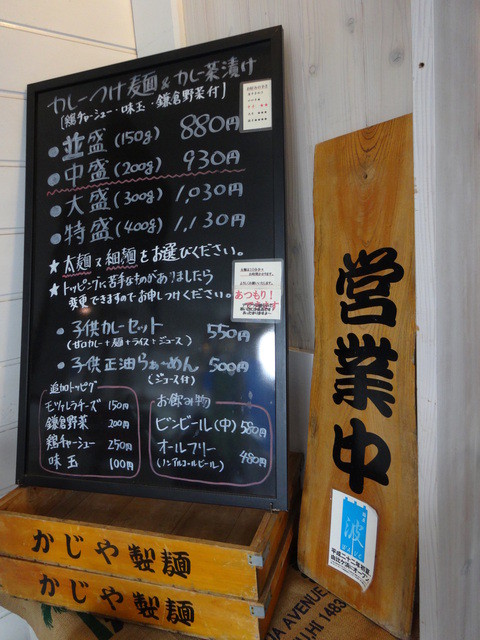 カレーつけ麺&カレー菜漬け
[鶏チャーシュー・味玉・鎌倉野菜付]
●並盛(150g) 880円
●中盛(200g) 930円
●大盛(300g) 1,030円
●特盛(400g) 1,130円
★太麺又細麺をお選びください。
★トッピングに苦手なものがありましたら
変更できますのでお申しつけください。
あつもり!
できます
●子供カレーセット 550円
(甘口カレー+麺+ライス+ジュース)
●子供正油らぁーめん 500円
(ジュース付)
追加トッピング
モッツァレラチーズ 150円
鎌倉野菜 200円
鶏チャーシュー 250円
味玉 100円
お飲み物
ビンビール(中) 580円
オールフリー 480円
(ノンアルコールビール)
かじや製麺
かじや製麺
営業中
波
平成二十二年初夏
AVENUE
HI 1483